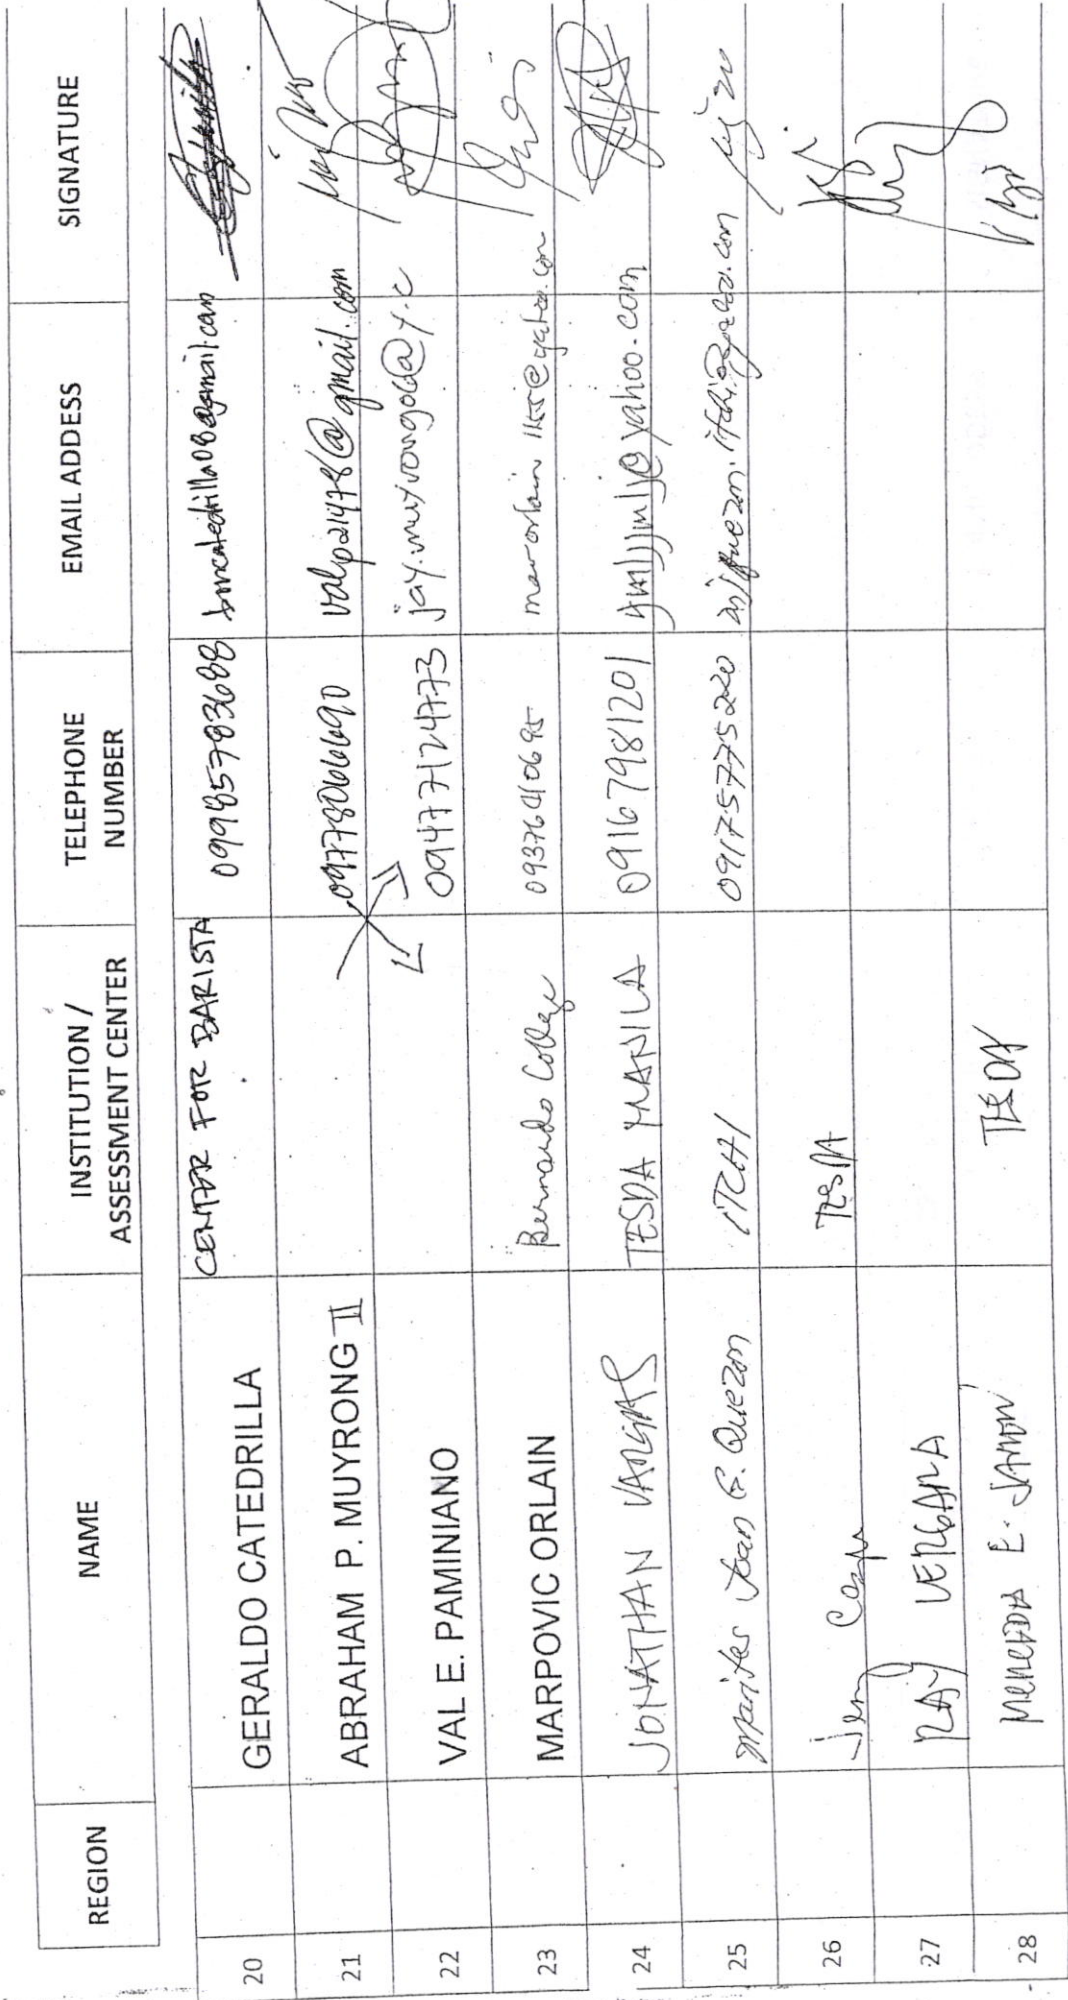 REGION NAME INSTITUTION / ASSESSMENT CENTER TELEPHONE NUMBER EMAIL ADDESS SIGNATURE
20 GERALDO CATEDRILLA CENTER FOR BARISTA 09985783688
21 ABRAHAM P. MUYRONG II 09778066690 valp21478@gmail.com
22 VAL E. PAMINIANO 09477124773 jay.muyrong06@y.c
23 MARPOVIC ORLAIN Bernardo College
24 JONATHAN VARGAS TESDA MANILA 09167981201 @yahoo.com
25 Marites Joan G. Quezon ITCHI 09175775220
26 TESDA
27 RAY VERGARA
28 E. TESDA